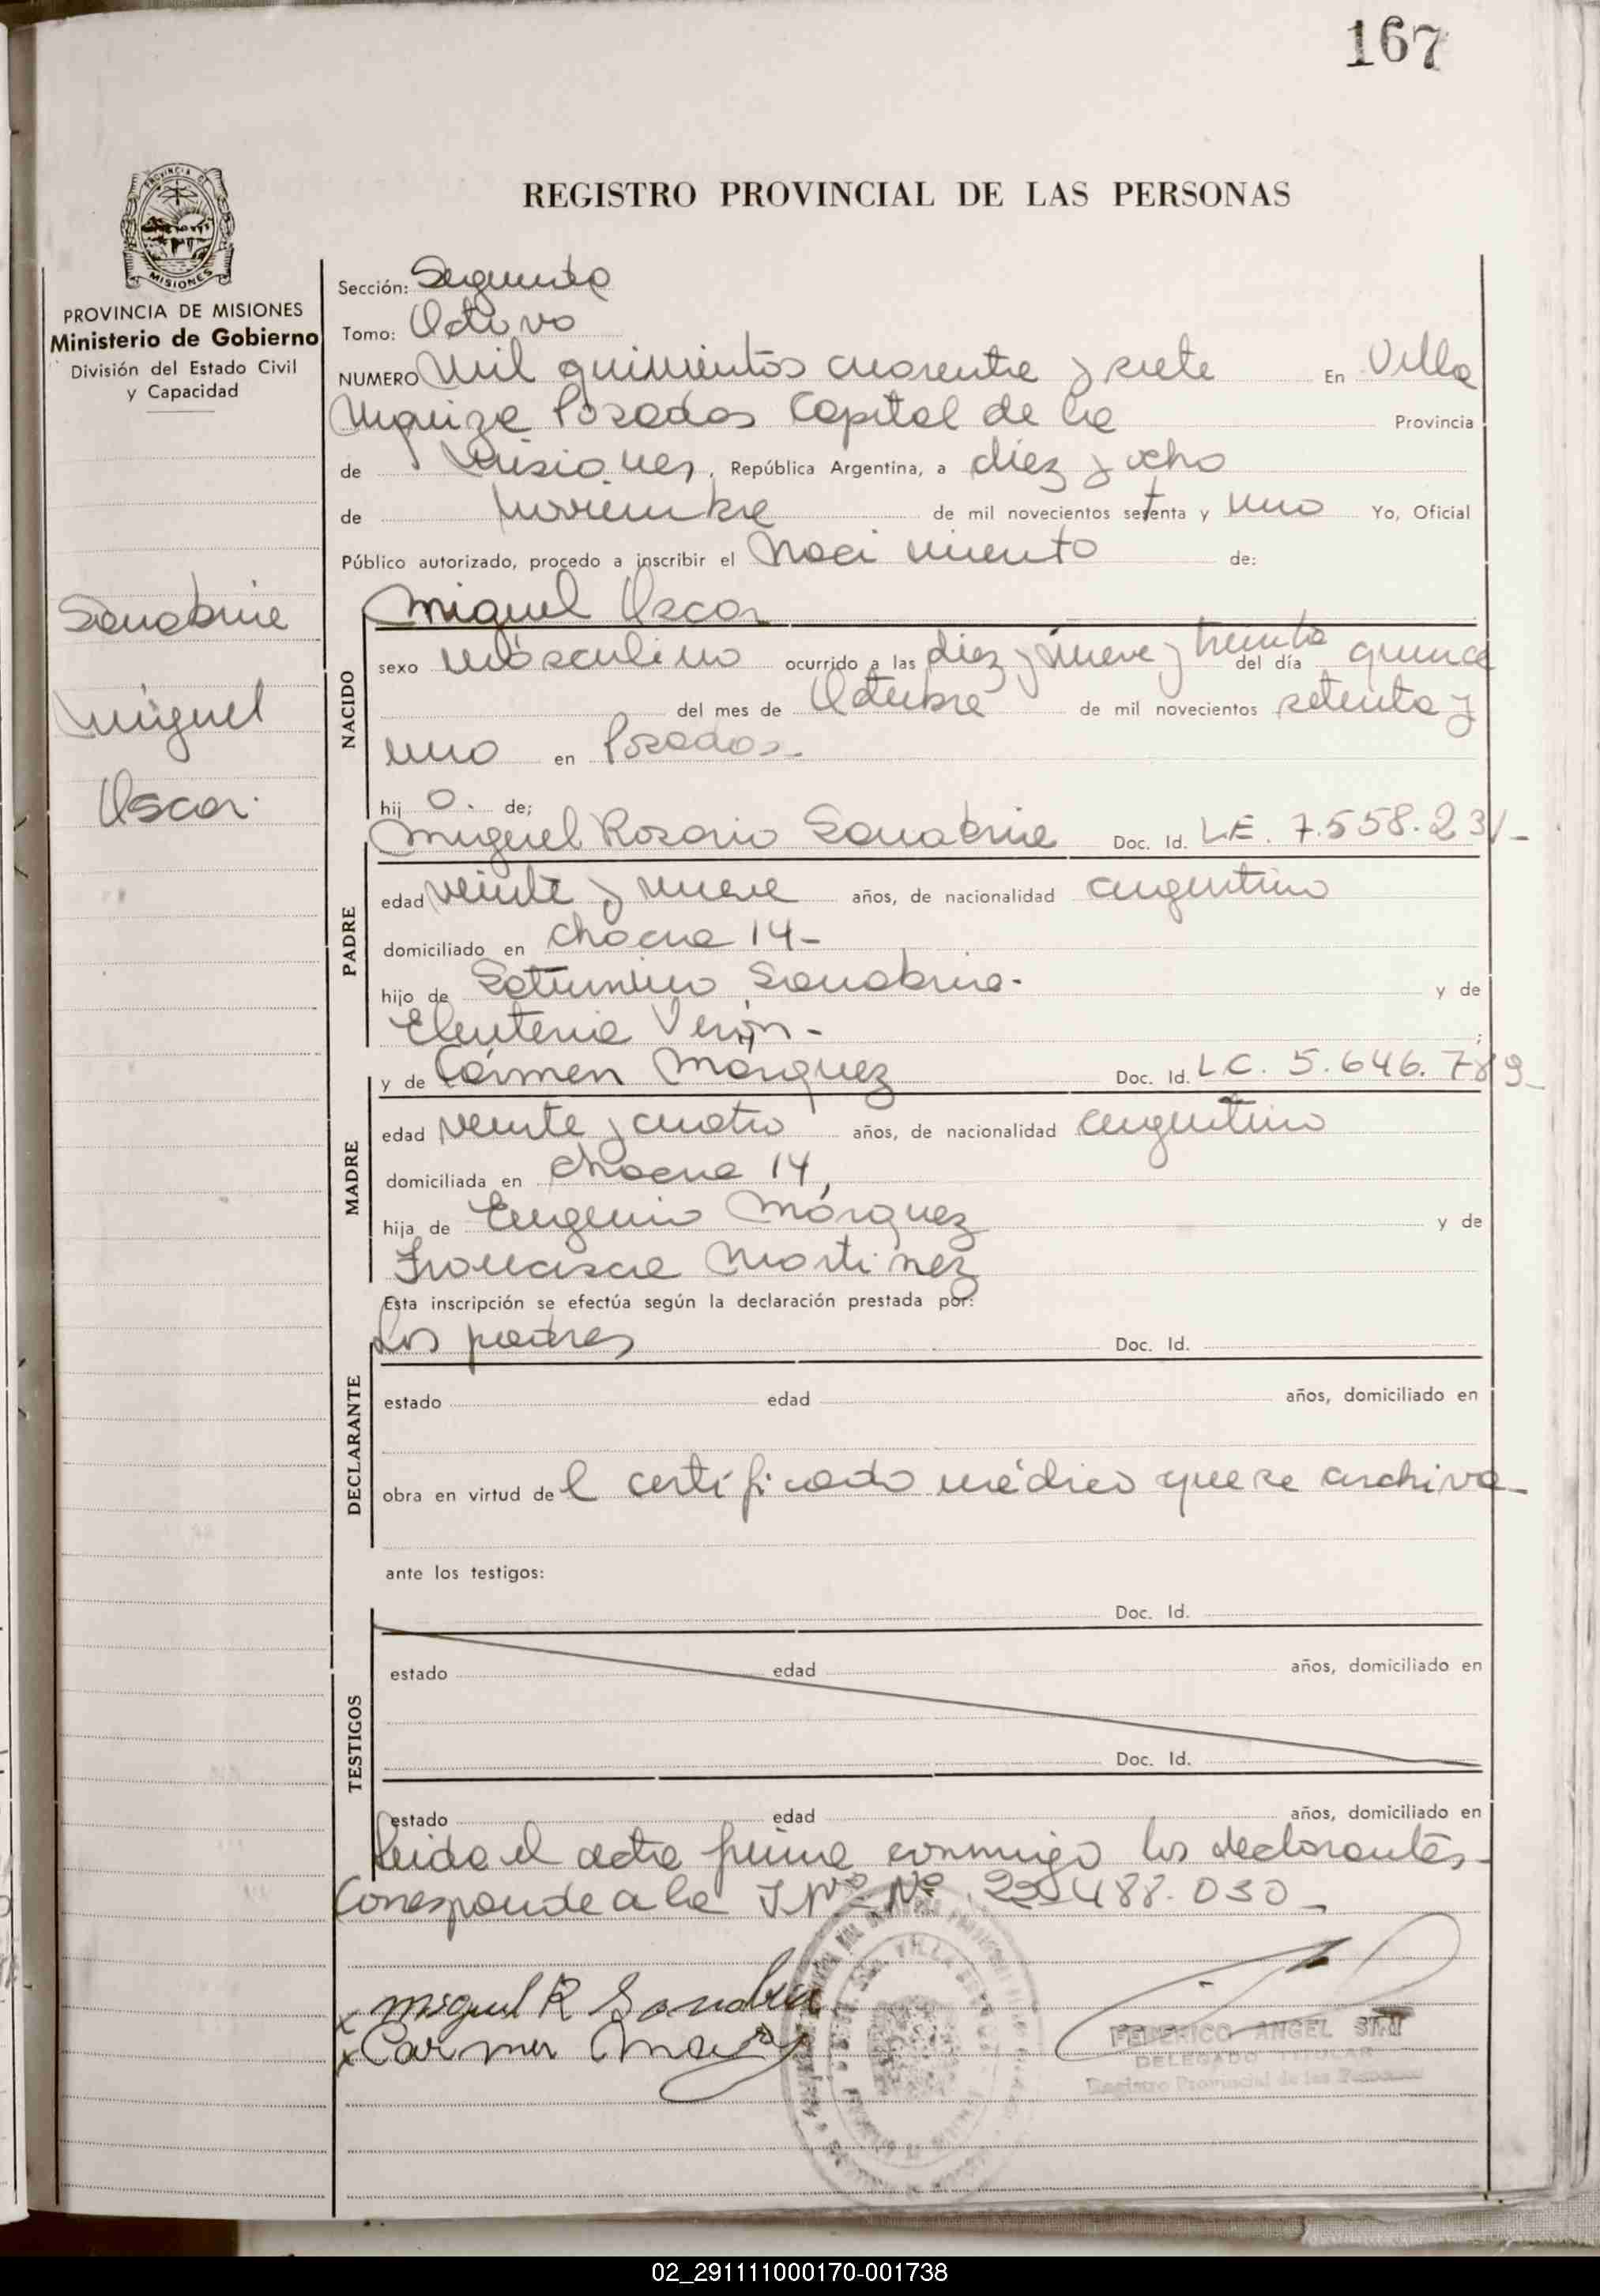 167
REGISTRO PROVINCIAL DE LAS PERSONAS
PROVINCIA DE
MISIONES
PROVINCIA DE MISIONES
Ministerio de Gobierno
División del Estado Civil
y Capacidad
Sanabria
Miguel
Oscar.
Sección: Segunda
Tomo: Octavo
NUMERO Mil quinientos cuarenta y siete En Villa
Posadas Capital de la Provincia
de Misiones, República Argentina, a diez y ocho
de Noviembre de mil novecientos setenta y uno Yo, Oficial
Público autorizado, procedo a inscribir el Nacimiento de:
Miguel Oscar
NACIDO
sexo Masculino ocurrido a las diez y nueve y treinta del día quince
del mes de Octubre de mil novecientos setenta y
uno en Posadas.-
hij o. de;
Miguel Rosario Sanabria Doc. Id. L.E. 7.558.231-
PADRE
edad veinte y nueve años, de nacionalidad argentino
domiciliado en chacra 14-
hijo de Saturnino Sanabria- y de
Eleuteria Verón- ;
y de Cármen Márquez Doc. Id. L.C. 5.646.789-
MADRE
edad veinte y cuatro años, de nacionalidad argentina
domiciliada en chacra 14,
hija de Eugenio Márquez y de
Francisca Martinez
Esta inscripción se efectúa según la declaración prestada por:
Los padres Doc. Id.
DECLARANTE
estado edad años, domiciliado en
obra en virtud de l certificado médico que se archiva-
ante los testigos:
Doc. Id.
TESTIGOS
estado edad años, domiciliado en
Doc. Id.
estado edad años, domiciliado en
Leida el acta firma conmigo los declarantes-
Corresponde a la Nº 22.488.030-
x Miguel R Sanabria
x Carmen
FEDERICO ANGEL
DELEGADO TITULAR
Registro Provincial de las Personas
VILLA
02_291111000170-001738